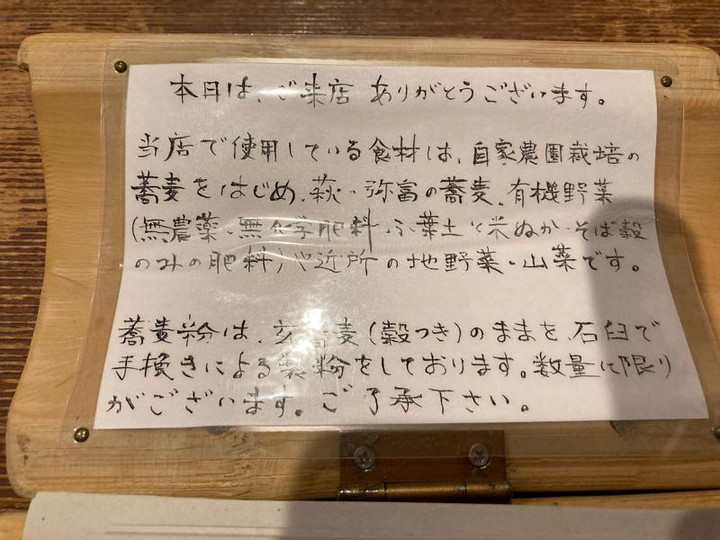 本日は、ご来店 ありがとうございます。
当店で使用している食材は、自家農園栽培の
蕎麦をはじめ、萩・弥富の蕎麦、有機野菜
(無農薬・無化学肥料・ふ葉土と米ぬか・そば穀
のみの肥料)や近所の地野菜・山菜です。
蕎麦粉は、玄蕎麦(穀つき)のままを、石臼で
手挽きによる製粉をしております。数量に限り
がございます。ご了承下さい。